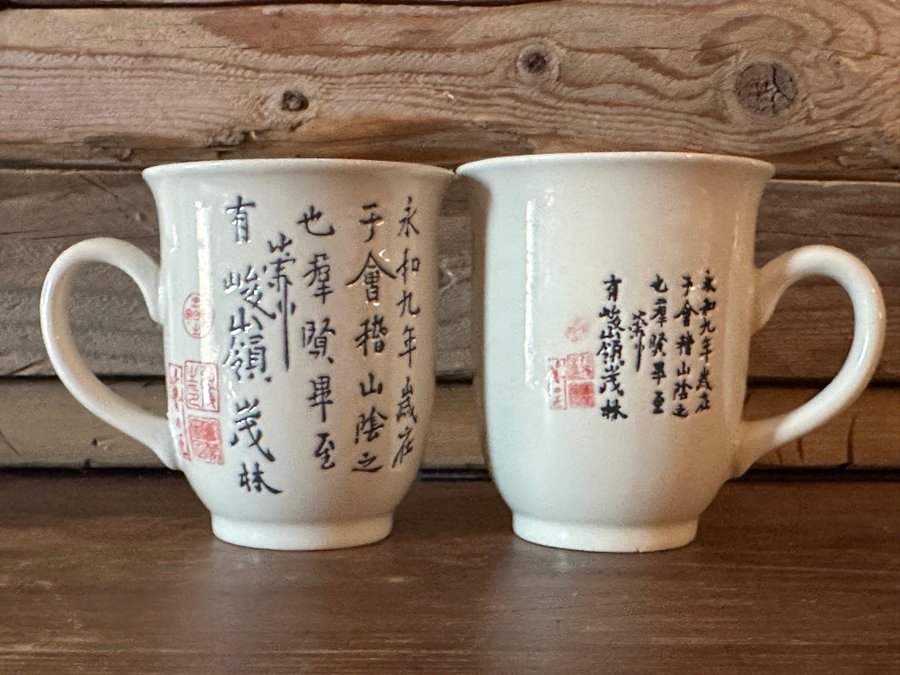 永和九年歲在
于會稽山陰之
也羣賢畢至
崇山
有峻嶺茂林
永和九年歲在
于會稽山陰之
也羣賢畢至
崇山
有峻嶺茂林